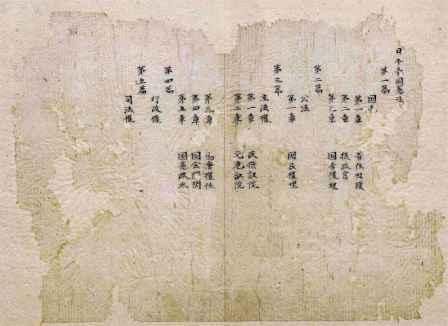 日本帝國憲法
第一篇
國帝
第一章 帝位相續
第二章 攝政官
第三章 國帝權理
第二篇
公法
第一章 國民權理
第三篇
立法權
第一章 民撰議院
第二章 元老議院
第三章 國會權任
第四章 國會開閉
第五章 國憲改正
第四篇
行政權
第五篇
司法權